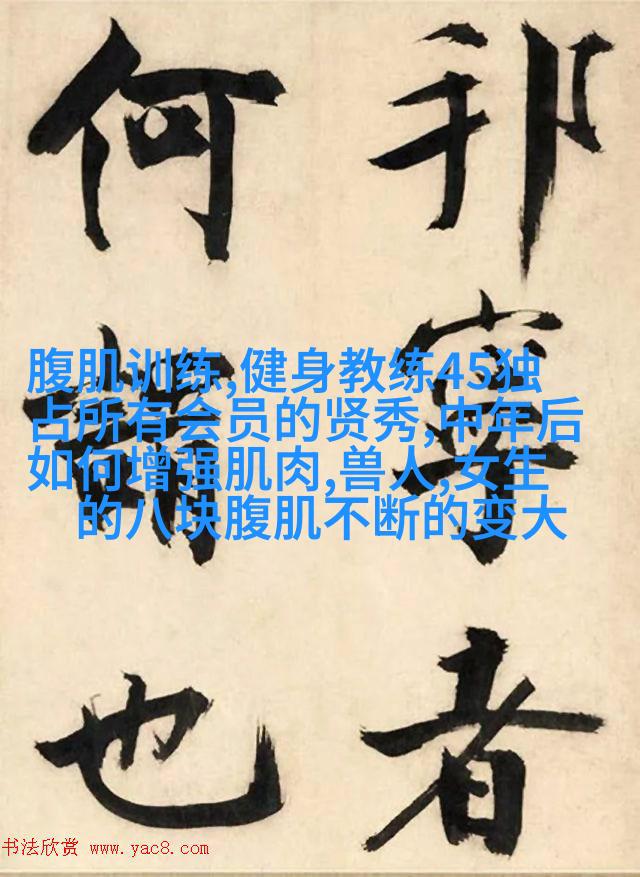 邦寧者
何謂也
腹肌训练,健身教练45独
占所有会员的贤秀,中年后
如何增强肌肉,兽人,女生
的八块腹肌不断的变大
书法欣赏 www.yac8.com